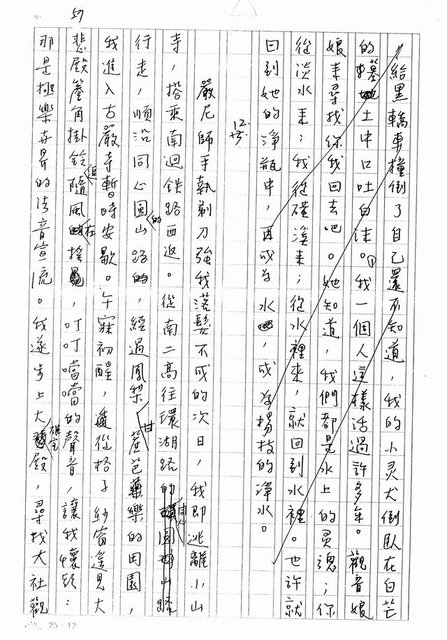 57
給黑轎車撞倒了自己還不知道，我的小灵犬倒臥在白芒
的墓土中口吐白沫。我一個人這樣活過許多年。觀音娘
娘来尋找你我回去吧。她知道，我們都是水上的灵魂；你
從淡水来；我從磺溪来；從水裡來，就回到水裡。也許就
回到她的淨瓶中，再成为水，成为楊枝的淨水。
12.
嚴尼師手執剃刀強我落髮不成的次日，我即逃離小山
寺，搭乘南迴鉄路西返。從南二高往環湖路的
行走，順沿同心圓山路的，經過鳳梨、甘蔗芭樂的田園，
我進入古嚴寺暫時安歇。午寐初醒，從格子紗窗遥見大
悲殿簷角掛鈴隨風在搖，叮叮噹噹的聲音，讓我懷疑：
那是極樂世界的清音宣流。我遂步上大雄宝殿，尋找大社觀
25×12